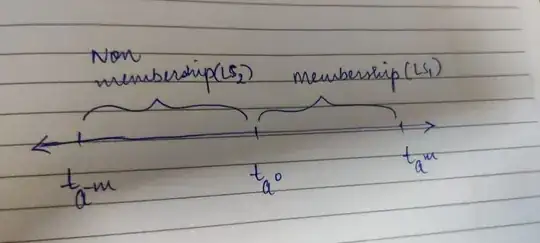 Non
membership(LS₂) membership(LS₁)
t_a-m t_a⁰ t_a^m